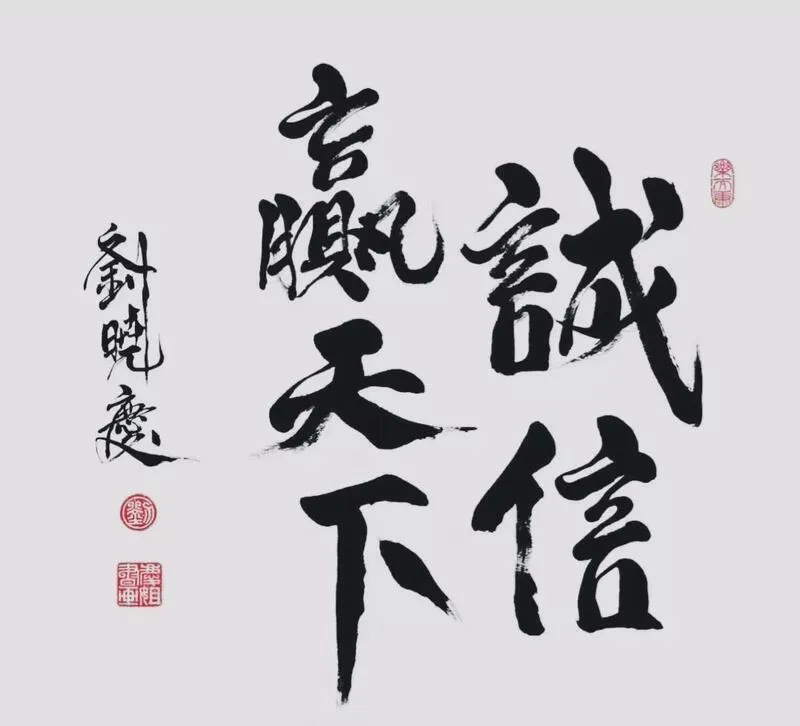 誠信
贏天下
劉曉慶